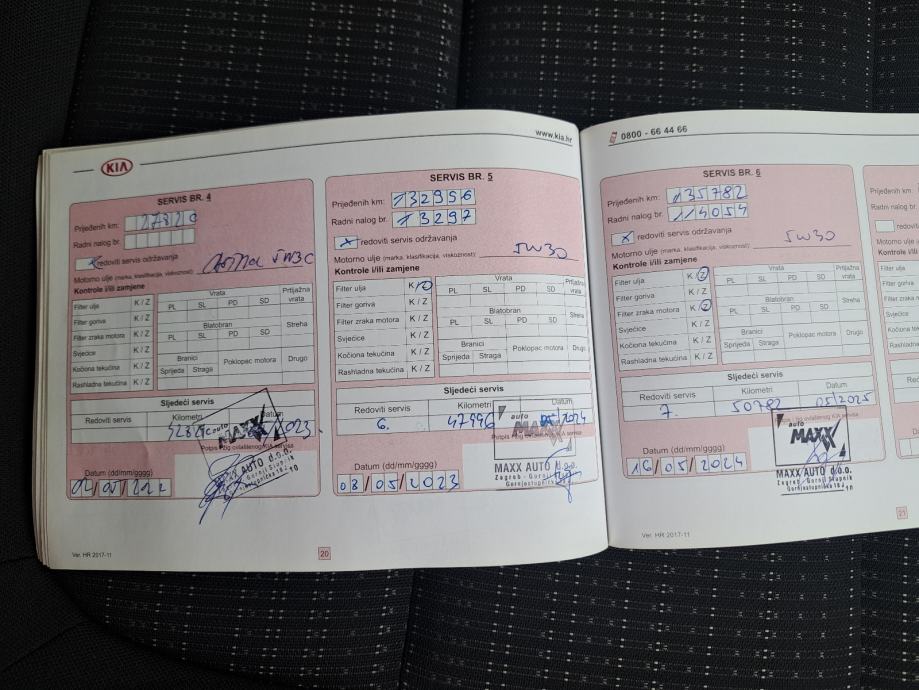 www.kia.hr
KIA
SERVIS BR. 4
Prijeđenih km:
Radni nalog br.
redoviti servis održavanja
Motorno ulje (marka, klasifikacija, viskoznost):
Kontrole i/ili zamjene
Filter ulja K / Z
Filter goriva K / Z
Filter zraka motora K / Z
Svjećice K / Z
Kočiona tekućina K / Z
Rashladna tekućina K / Z
Vrata Prtljažna vrata
PL SL PD SD
Blatobran Streha
PL SL PD SD
Branici Poklopac motora Drugo
Sprijeda Straga
Sljedeći servis
Redoviti servis Kilometri Datum
2023.
auto
MAXX
MAXX AUTO d.o.o.
Datum (dd/mm/gggg)
SERVIS BR. 5
Prijeđenih km: 132956
Radni nalog br. 13297
x redoviti servis održavanja
Motorno ulje (marka, klasifikacija, viskoznost): 5W30
Kontrole i/ili zamjene
Filter ulja K / Z
Filter goriva K / Z
Filter zraka motora K / Z
Svjećice K / Z
Kočiona tekućina K / Z
Rashladna tekućina K / Z
Vrata Prtljažna vrata
PL SL PD SD
Blatobran Streha
PL SL PD SD
Branici Poklopac motora Drugo
Sprijeda Straga
Sljedeći servis
Redoviti servis Kilometri Datum
6. 05/2024
auto
MAXX
MAXX AUTO d.o.o.
Zagreb - Gornji Stupnik
Gornjostupnička
Datum (dd/mm/gggg)
08/05/2023
Ver. HR 2017-11
20
0800 - 66 44 66
SERVIS BR. 6
Prijeđenih km: 135782
Radni nalog br. 114054
x redoviti servis održavanja
Motorno ulje (marka, klasifikacija, viskoznost): 5W30
Kontrole i/ili zamjene
Filter ulja K / Z
Filter goriva K / Z
Filter zraka motora K / Z
Svjećice K / Z
Kočiona tekućina K / Z
Rashladna tekućina K / Z
Vrata Prtljažna vrata
PL SL PD SD
Blatobran Streha
PL SL PD SD
Branici Poklopac motora Drugo
Sprijeda Straga
Sljedeći servis
Redoviti servis Kilometri Datum
7. 50782 05/2025
auto
MAXX
MAXX AUTO d.o.o.
Zagreb - Gornji Stupnik
Gornjostupnička
Datum (dd/mm/gggg)
16/05/2024
Ver. HR 2017-11
21